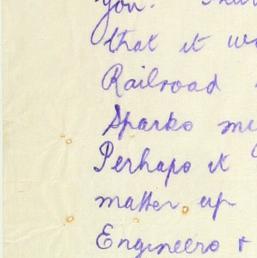 you.
that it w
Railroad
Sparks m
Perhaps it
matter up
Engineers +